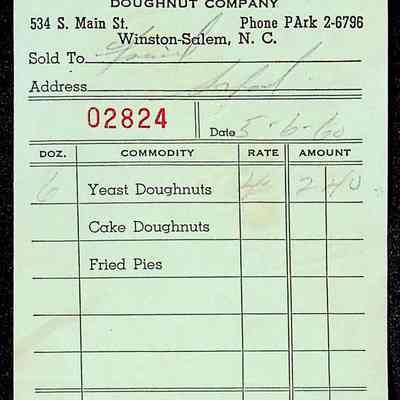 DOUGHNUT COMPANY
534 S. Main St. Phone PArk 2-6796
Winston-Salem, N. C.
Sold To
Address
02824 Date 5-6-60
DOZ. COMMODITY RATE AMOUNT
6 Yeast Doughnuts 40 2 40
Cake Doughnuts
Fried Pies